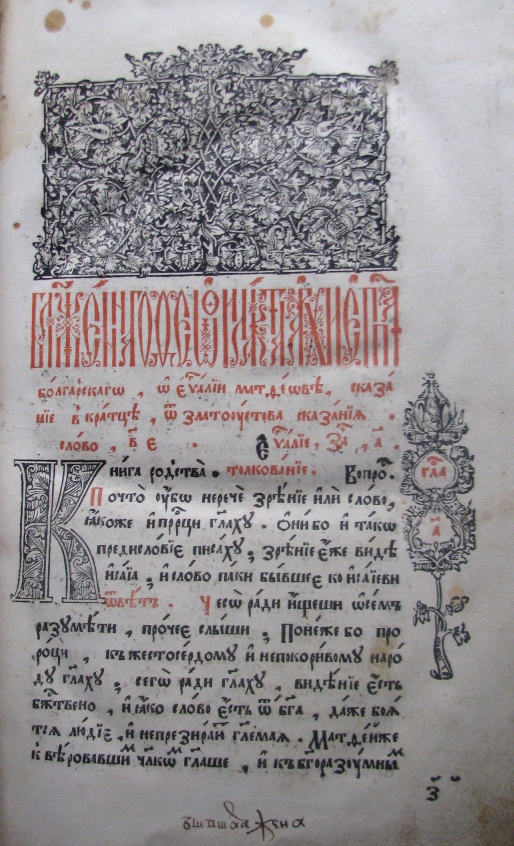 бл҃же́ннагѡ ѳеѡфила́кта а҆рхиепⷭ҇па
бо́лгарскагѡ, ѡ҆ є҆ѵⷢ҇лїи матѳеовѣ, сказа́
нїе в кра́тцѣ, ѿ златоꙋстова сказа́нїѧ.
сло́во, в҃ е
є҆ѵⷢ҇лїе, за҃, а҃.
Кни́га родства̀. толкова́нїе. Вопро́с.
Почто̀ ꙋ҆́бѡ неречѐ зрѣ́нїе и҆лѝ сло́во,
ꙗ҆́коже и҆ прⷪ҇ро́цы гл҃ахꙋ. ѻ҆ни́ бо и҆ та́кѡ
предисло́вїе писа́хꙋ, зрѣ́нїе є҆́же ви́дѣ
и҆са́їа, и҆ сло́во па́ки бы́вшее ко и҆са́їеви
ѿвѣ́тъ. Чесѡ̀ ра́ди и҆́щеши ѡ҆ се́мъ
разꙋмѣ́ти, про́чее слы́ши, Поне́же бо про
ро́цы, къ жестосе́рдомꙋ и҆ непокори́вомꙋ наро́
дꙋ гл҃ахꙋ, сегѡ̀ ра́ди гл҃ахꙋ, ви́дѣнїе є҆́сть
бжⷭ҇твено, и҆ ꙗ҆́ко сло́во є҆́сть ѿ бг҃а, да́же боѧ́
тсѧ лю́дїе, и҆ непрезира́ютъ гл҃емаѧ. Матѳе́й же
к вѣ́ровавшимъ чл҃кѡмъ гл҃аше, и҆ къ бл҃горазꙋ́мнымъ
гла
а҃
з҃